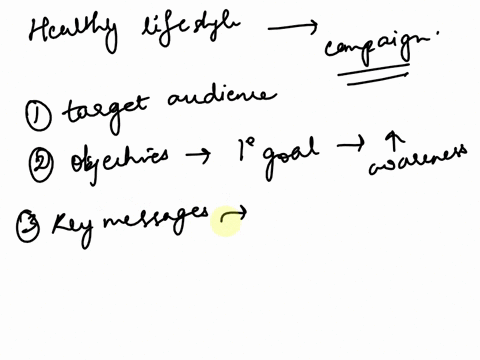 Healthy lifestyle → campaign.
① target audience
② Objectives → 1° goal → ↑ awareness
③ Key messages →